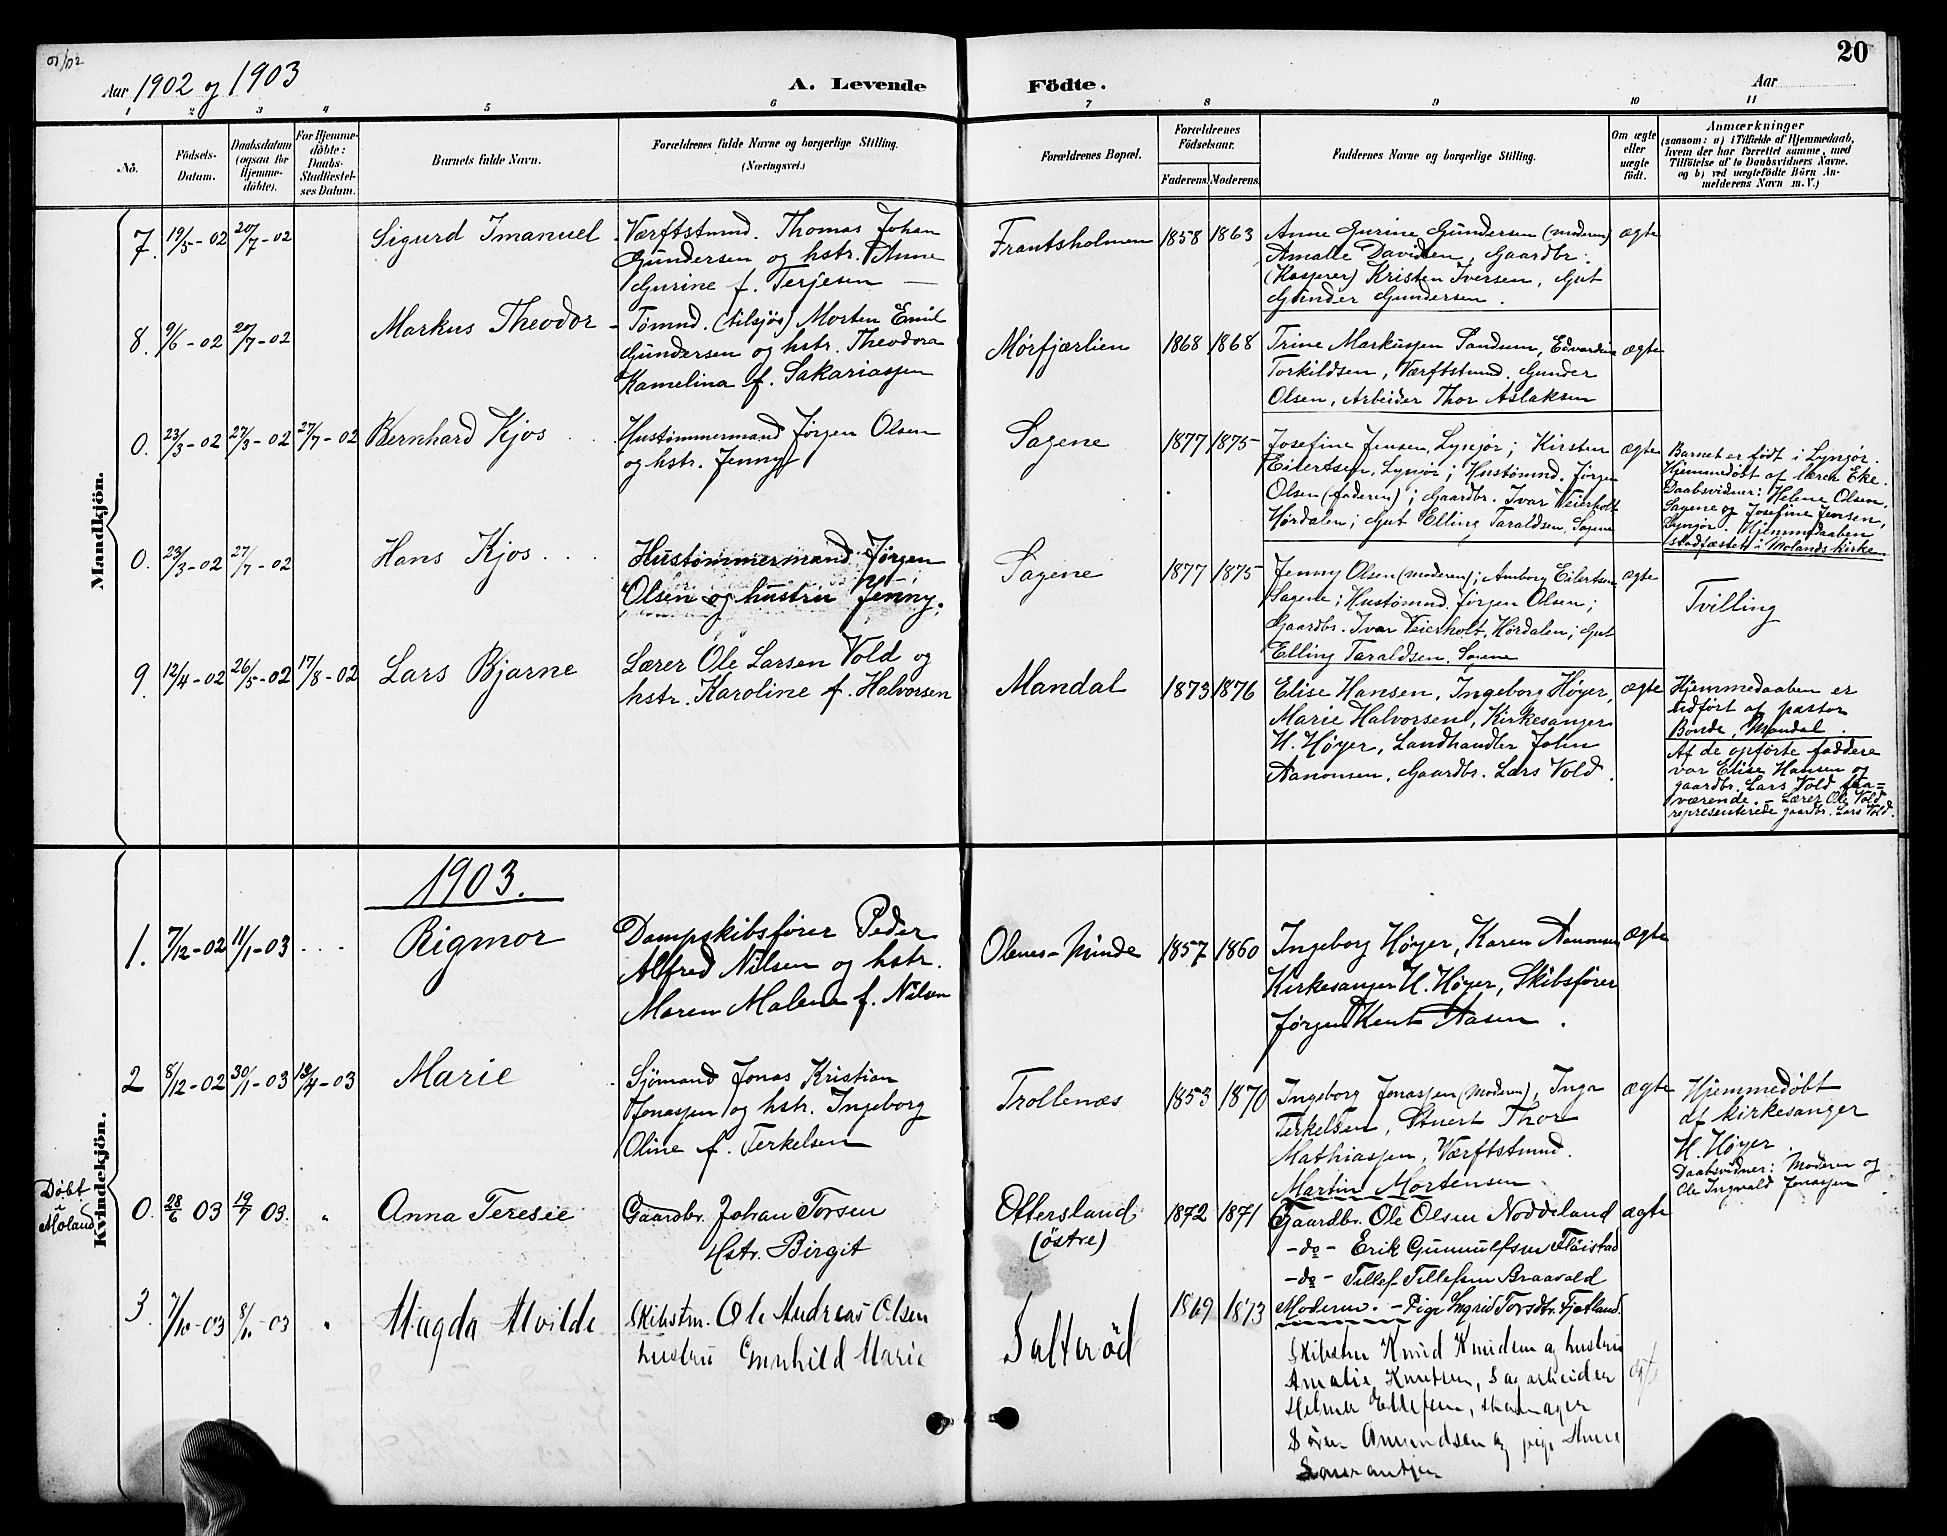 20
Aar 1902 og 1903
A. Levende Födte.
Aar
1 2 3 4 5 6 7 8 9 10 11
No.
Födsels-
Datum.
Daabsdatum
(ogsaa for
Hjemme-
döbte).
For Hjemme-
döbte:
Daabs-
Stadfæstel-
ses Datum.
Barnets fulde Navn.
Forældrenes fulde Navne og borgerlige Stilling.
(Næringsvei.)
Forældrenes Bopæl.
Forældrenes
Födselsaar.
Faderens. Moderens.
Faddernes Navne og borgerlige Stilling.
Om ægte
eller
uægte
födt.
Anmærkninger
(saasom: a) i Tilfælde af Hjemmedaab,
hvem der har forrettet samme, med
Tilföielse af to Daabsvidners Navne,
og b) ved uægtefödte Börn An-
melderens Navn m. V.)
Mandkjön.
7. 19/5-02 20/7-02
Sigurd Imanuel
Værftstmnd. Thomas Johan
Gundersen og hstr. Anne
Gurine f. Terjesen
Frantsholmen
1858 1863
Anne Gurine Gundersen (moderen)
Amalie Davidsen, Gaardbr.
(Kasserer) Kristen Iversen, Gut
Gunder Gundersen.
ægte
8. 9/6-02 20/7-02
Markus Theodor
Tømnd. (tilsjøs) Morten Emil
Gundersen og hstr. Theodora
Kamelina f. Sakariassen
Mörfjærlien
1868 1868
Trine Markussen Sandum, Edvardine
Torkildsen, Værftstmnd. Gunder
Olsen, Arbeider Thor Aslaksen
ægte
0. 23/3-02 27/3-02 27/7-02
Bernhard Kjos
Hustømmermand Jørgen Olsen
og hstr. Jenny
Sagene
1877 1875
Josefine Jensen, Lyngör; Kirsten
Eilertsen, Lyngör; Hustømnd. Jørgen
Olsen (faderen); Gaardbr. Ivar Veierholt
Hørdalen; Gut Elling Taraldsen, Sagene
ægte
Barnet er født i Lyngør.
Hjemmedøbt af lærer Eke.
Daabsvidner: Helene Olsen,
Sagene og Josefine Jensen,
Lyngør. Hjemmedaaben
stadfæstet i Molands kirke
0. 23/3-02 27/7-02
Hans Kjos
Hustømmermand Jørgen
Olsen og hustru Jenny.
Sagene
1877 1875
Jenny Olsen (moderen); Amborg Eilertsen
Sagene; Hustømnd. Jørgen Olsen;
Gaardbr. Ivar Veierholt, Hørdalen; Gut
Elling Taraldsen, Sagene
ægte
Tvilling
9. 12/4-02 26/5-02 17/8-02
Lars Bjarne
Lærer Ole Larsen Vold og
hstr. Karoline f. Halvorsen
Mandal
1873 1876
Elise Hansen, Ingeborg Høyer,
Marie Halvorsen, Kirkesanger
H. Høyer, Landhandler John
Aanonsen, Gaardbr. Lars Vold.
ægte
Hjemmedaaben er
udført af pastor
Bonde, Mandal.
Af de opførte faddere
var Elise Hansen og
gaardbr. Lars Vold fra-
værende. - Lærer Ole Vold
representerede gaardbr. Lars Vold.
Kvindekjön.
1903.
1. 7/12-02 11/1-03
Rigmor
Dampskibsfører Peder
Alfred Nilsen og hstr.
Maren Malene f. Nilsen
Olenes-Minde
1857 1860
Ingeborg Høyer, Karen Aanonsen
Kirkesanger H. Høyer, Skibsfører
Jørgen Kent Aasen.
ægte
2 8/12-02 30/1-03 13/4-03
Marie
Sjömand Jonas Kristian
Jonassen og hstr. Ingeborg
Oline f. Terkelsen
Trollenæs
1853 1870
Ingeborg Jonassen (Moderen), Inga
Terkelsen, Stuert Thor
Mathiassen, Værftstmnd.
Martin Mortensen
ægte
Hjemmedøbt
af kirkesanger
H. Høyer.
Daabsvidner: Moderen og
Ole Ingvald Jonassen
Döbt
i
Moland
0. 28/6 03 19/7 03. "
Anna Teresie
Gaardbr. Johan Torsen
Hstr. Birgit
Ottersland
(östre)
1872 1871
Gaardbr. Ole Olsen Noddeland
-do- Erik Gunnulfsen Flöistad
-do- Tellef Tellefsen Braavold
Moderen. - Pige Ingrid Torsdtr. Fjotland.
ægte
3. 7/10-03 8/10-03 "
Magda Alvilde
Skibstm. Ole Andreas Olsen
hustru Gunhild Marie
Salteröd
1869 1873
Skibstm Knud Knudsen og hustru
Amalie Knutsen, Sagarbeider
Helmer Ellefsen, skomager
Sören Amundsen og pige